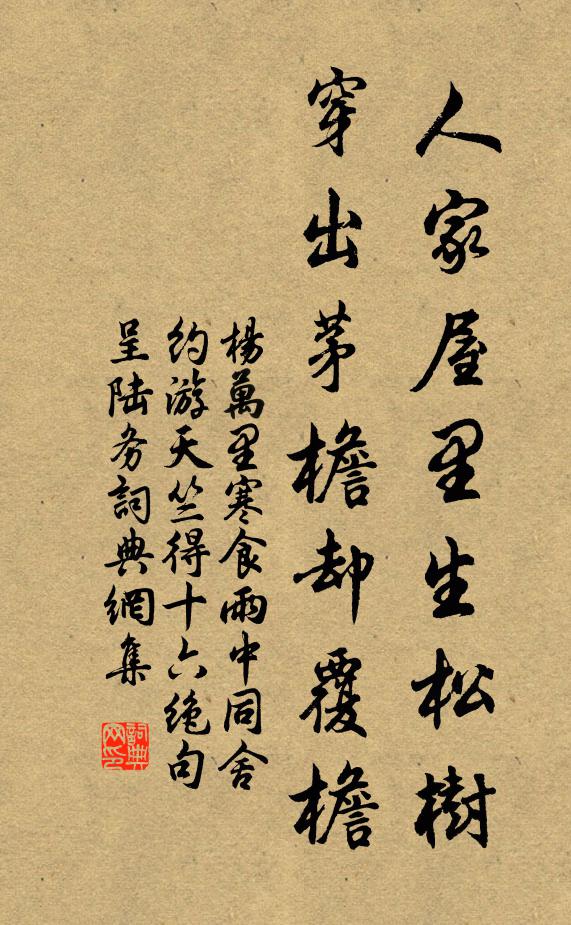 人家屋里生松樹
穿出茅檐却覆檐
楊萬里寒食雨中同舍
约游天竺得十六绝句
呈陆务詞典網集
詞典
网印